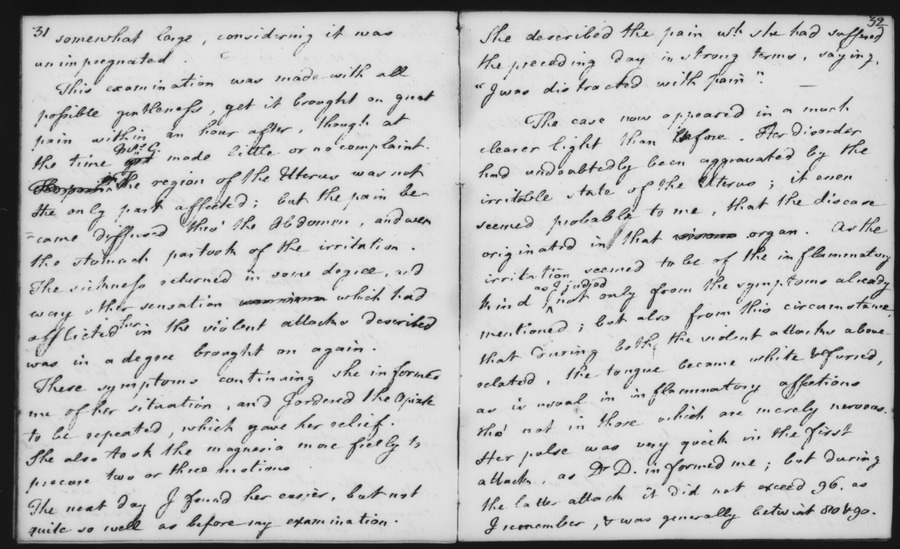 31
somewhat large, considering it was
unimpregnated.
This examination was made with all
possible gentleness, yet it brought on great
pain within an hour after, though at
the time Mrs. G. made little or no complaint.
The region of the Uterus was not
the only part affected; but the pain be-
=came diffused thro' the Abdomen, and even
the stomach partook of the irritation.
The sickness returned in some degree, and
every other sensation which had
afflicted her in the violent attacks described
was in a degree brought on again.
These symptoms continuing she informed
me of her situation, and I ordered the Opiate
to be repeated, which gave her relief.
She also took the magnesia more freely to
procure two or three motions.
The next day I found her easier, but not
quite so well as before my examination.
32
She described the pain wh. she had suffered
the preceding day in strong terms, saying,
"I was distracted with pain". —
The case now appeared in a much
clearer light than before. Her disorder
had undoubtedly been aggravated by the
irritable state of the Uterus; it even
seemed probable to me, that the disease
originated in that organ. As the
irritation seemed to be of the inflammatory
kind as I judged not only from the symptoms already
mentioned; but also from this circumstance,
that during both the violent attacks above-
related, the tongue became white & furred,
as is usual in inflammatory affections
tho' not in those which are merely nervous.
Her pulse was very quick in the first
attack, as Dr. D. informed me; but during
the latter attack it did not exceed 96. as
I remember, & was generally betwixt 80 & 90.